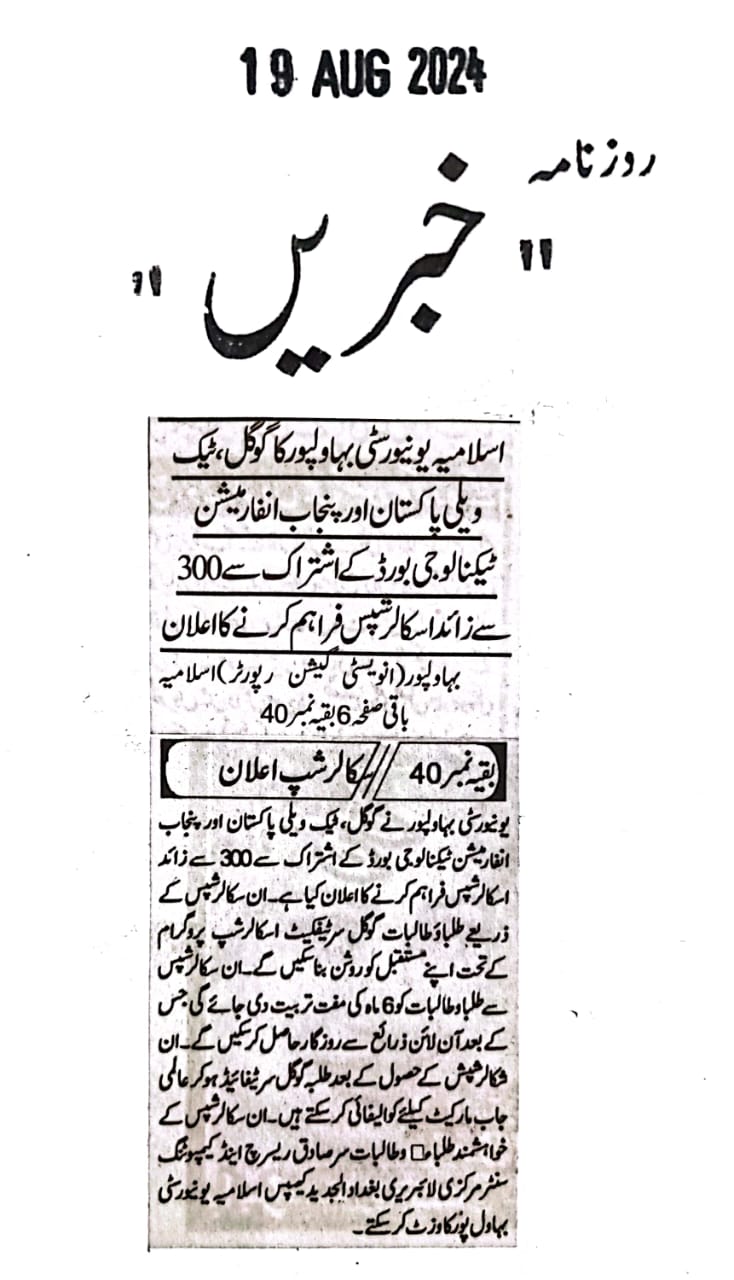 19 AUG 2024
روزنامہ
"خبریں"
اسلامیہ یونیورسٹی بہاولپور کا گوگل، ٹیک
ویلی پاکستان اور پنجاب انفارمیشن
ٹیکنالوجی بورڈ کے اشتراک سے 300
سے زائد اسکالرشپس فراہم کرنے کا اعلان
بہاولپور (انویسٹی گیشن رپورٹر) اسلامیہ
باقی صفحہ 6 بقیہ نمبر 40
بقیہ نمبر 40 // سکالرشپ اعلان
یونیورسٹی بہاولپور نے گوگل، ٹیک ویلی پاکستان اور پنجاب
انفارمیشن ٹیکنالوجی بورڈ کے اشتراک سے 300 سے زائد
اسکالرشپس فراہم کرنے کا اعلان کیا ہے۔ ان سکالرشپس کے
ذریعے طلباؤ طالبات گوگل سرٹیفکیٹ اسکالرشپ پروگرام
کے تحت اپنے مستقبل کو روشن بنا سکیں گے۔ ان سکالرشپس
سے طلبا و طالبات کو 6 ماہ کی مفت تربیت دی جائے گی جس
کے بعد آن لائن ذرائع سے روزگار حاصل کر سکیں گے۔ ان
شکالرشپش کے حصول کے بعد طلبہ گوگل سرٹیفائیڈ ہو کر عالمی
جاب مارکیٹ کیلئے کوالیفائی کر سکتے ہیں۔ ان سکالرشپس کے
خواہشمند طلباء□ و طالبات سر صادق ریسرچ اینڈ کمپیوٹنگ
سنٹر مرکزی لائبریری بغداد الجدید کیمپس اسلامیہ یونیورسٹی
بہاول پور کا وزٹ کر سکتے۔